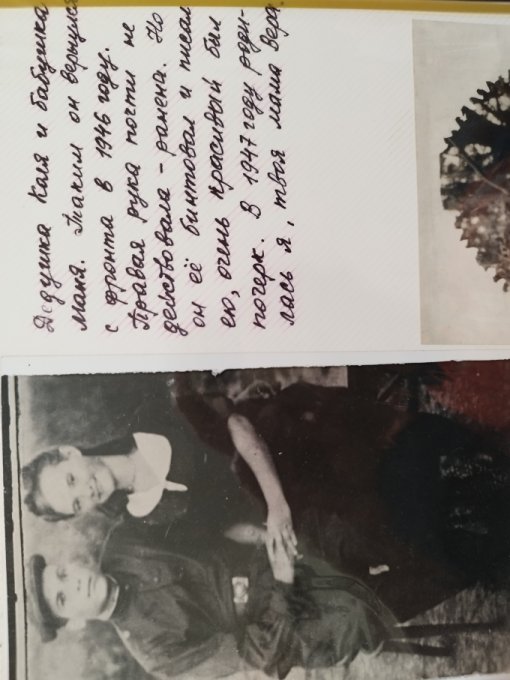 Дедушка Коля и бабушка
Маня. Таким он вернулся
с фронта в 1946 году.
Правая рука почти не
действовала - ранена. Но
он её бинтовал и писал
ею, очень красивый был
почерк. В 1947 году роди-
лась я, твоя мама Вера.